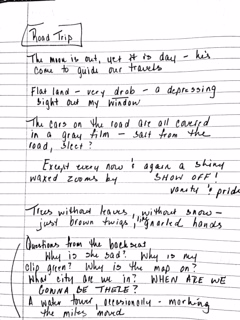 Road Trip
The moon is out, yet it is day - his
come to guide our travels
Flat land - very drab - a depressing
sight out my window
The cars on the road are all covered
in a gray film - salt from the
road, sleet?
Except every now & again a shiny
waxed zooms by SHOW OFF!
vanity & pride
Trees without leaves, without snow -
just brown twigs, gnarled hands
Questions from the backseat
Why is she sad? Why is my
clip green? Why is the map on?
What city are we in? WHEN ARE WE
GONNA BE THERE?
A water tower, occasionally - marking
the miles